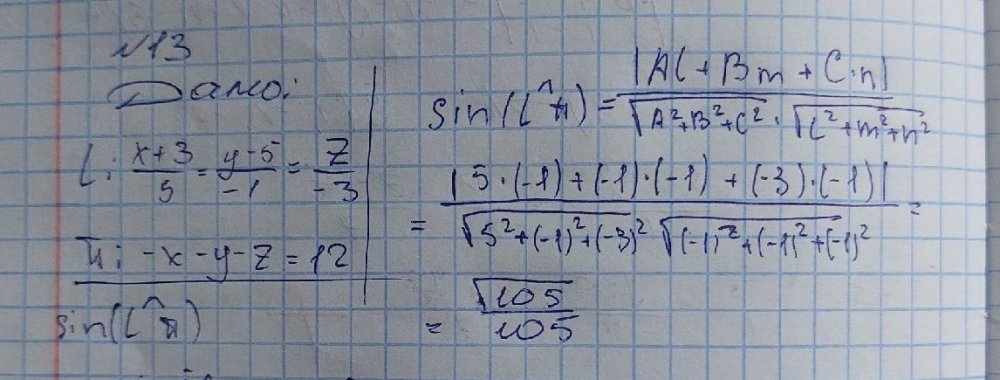 №13
Дано:
l: (x+3)/5 = (y-5)/-1 = z/-3
π: -x-y-z=12
sin(l^π)
sin(l^π) = |Al + Bm + C·n| / √(A²+B²+C²) · √(l²+m²+n²)
= |5·(-1) + (-1)·(-1) + (-3)·(-1)| / √(5²+(-1)²+(-3)²) √((-1)²+(-1)²+(-1)²) =
= √105 / 105